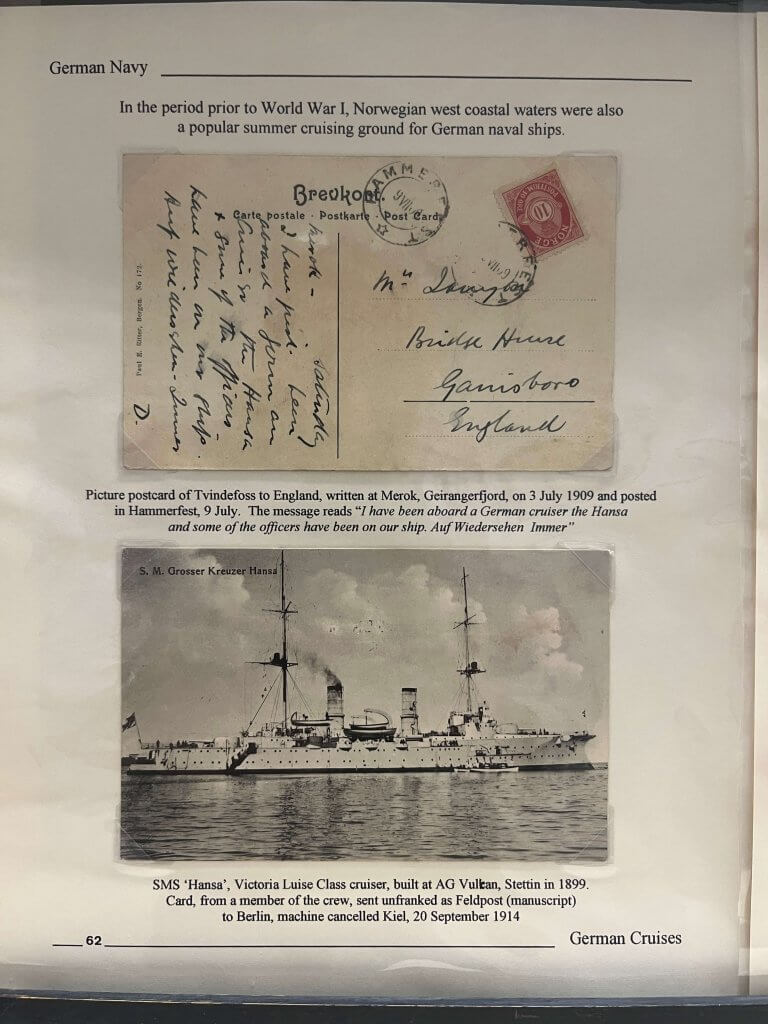 German Navy
In the period prior to World War I, Norwegian west coastal waters were also
a popular summer cruising ground for German naval ships.
Brevkort.
Carte postale · Postkarte · Post Card
HAMMERFEST
9 VII
NORGE
10
Merok - Saturday
I have just been
aboard a German
Cruiser the Hansa
& some of the officers
have been on our ship.
Auf wiedersehen - Immer
D.
Paul E. Ritter, Bergen. No 173.
Bridge House
Gainsboro
England
Picture postcard of Tvindefoss to England, written at Merok, Geirangerfjord, on 3 July 1909 and posted
in Hammerfest, 9 July. The message reads “I have been aboard a German cruiser the Hansa
and some of the officers have been on our ship. Auf Wiedersehen Immer”
S. M. Grosser Kreuzer Hansa
SMS ‘Hansa’, Victoria Luise Class cruiser, built at AG Vulkan, Stettin in 1899.
Card, from a member of the crew, sent unfranked as Feldpost (manuscript)
to Berlin, machine cancelled Kiel, 20 September 1914
62
German Cruises